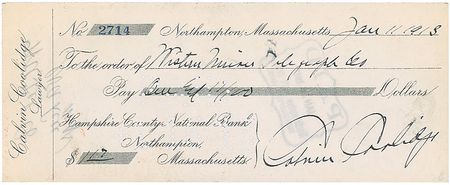 No 2714 Northampton, Massachusetts, Jan 11 1913
To the order of Western Union Telegraph Co
Pay One 17/100 Dollars
Hampshire County National Bank
Northampton,
$ 1.17 Massachusetts
Calvin Coolidge
Calvin Coolidge
Lawyer